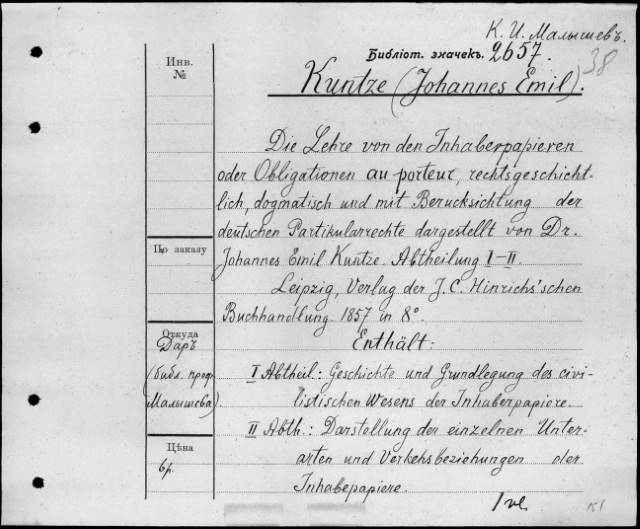 К. И. Малышевъ.
Библіот. значекъ. 2657.
38
Kuntze (Johannes Emil).
Инв.
№
Die Lehre von den Inhaberpapieren
oder Obligationen au porteur, rechtsgeschicht-
lich, dogmatisch und mit Berucksichtung der
deutschen Partikularrechte dargestellt von Dr.
Johannes Emil Kuntze. Abtheilung I-II.
Leipzig, Verlag der J. C. Hinrichs'schen
Buchhandlung. 1857 in 8°.
Enthält:
I Abtheil.: Geschichte und Grundlegung des civi-
listischen Wesens der Inhaberpapiere.
II Abth.: Darstellung der einzelnen Unter-
arten und Verkehsbeziehungen der
Inhabepapiere.
1 vl.
По заказу
Откуда
Даръ
(библ. проф.
Малышева)
Цѣна
6 р.
К1